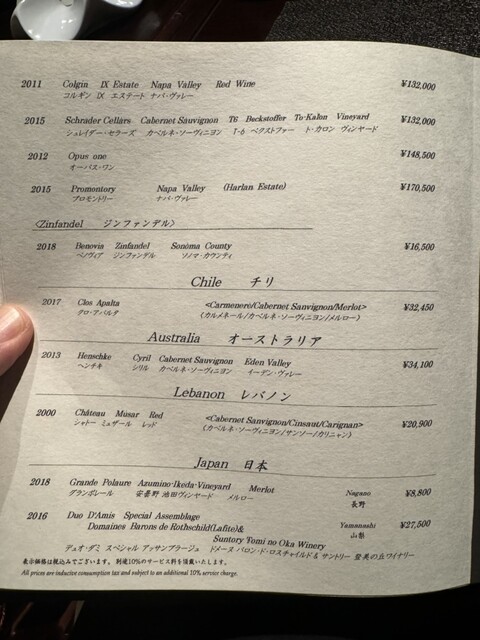 2011 Colgin IX Estate Napa Valley Red Wine ¥132,000
コルギン IX エステート ナパ・ヴァレー
2015 Schrader Cellars Cabernet Sauvignon T6 Beckstoffer To-Kalon Vineyard ¥132,000
シュレイダー・セラーズ カベルネ・ソーヴィニヨン T-6 ベクストファー ト・カロン ヴィンヤード
2012 Opus one ¥148,500
オーパス・ワン
2015 Promontory Napa Valley (Harlan Estate) ¥170,500
プロモントリー ナパ・ヴァレー
<Zinfandel ジンファンデル>
2018 Benovia Zinfandel Sonoma County ¥16,500
ベノヴィア ジンファンデル ソノマ・カウンティ
Chile チリ
2017 Clos Apalta <Carmenere/Cabernet Sauvignon/Merlot> ¥32,450
クロ・アパルタ (カルメネール/カベルネ・ソーヴィニヨン/メルロー)
Australia オーストラリア
2013 Henschke Cyril Cabernet Sauvignon Eden Valley ¥34,100
ヘンチキ シリル カベルネ・ソーヴィニヨン イーデン・ヴァレー
Lebanon レバノン
2000 Château Musar Red <Cabernet Sauvignon/Cinsaut/Carignan> ¥20,900
シャトー ミュザール レッド (カベルネ・ソーヴィニヨン/サンソー/カリニャン)
Japan 日本
2018 Grande Polaure Azumino-Ikeda-Vineyard Merlot Nagano ¥8,800
グランポレール 安曇野 池田ヴィンヤード メルロー 長野
2016 Duo D'Amis Special Assemblage Yamanashi ¥27,500
Domaines Barons de Rothschild(Lafite)& 山梨
Suntory Tomi no Oka Winery
デュオ・ダミ スペシャル アッサンブラージュ ドメーヌ バロン・ド・ロスチャイルド & サントリー 登美の丘ワイナリー
表示価格は税込みでございます。 別途10%のサービス料を頂戴いたします。
All prices are inclusive consumption tax and subject to an additional 10% service charge.